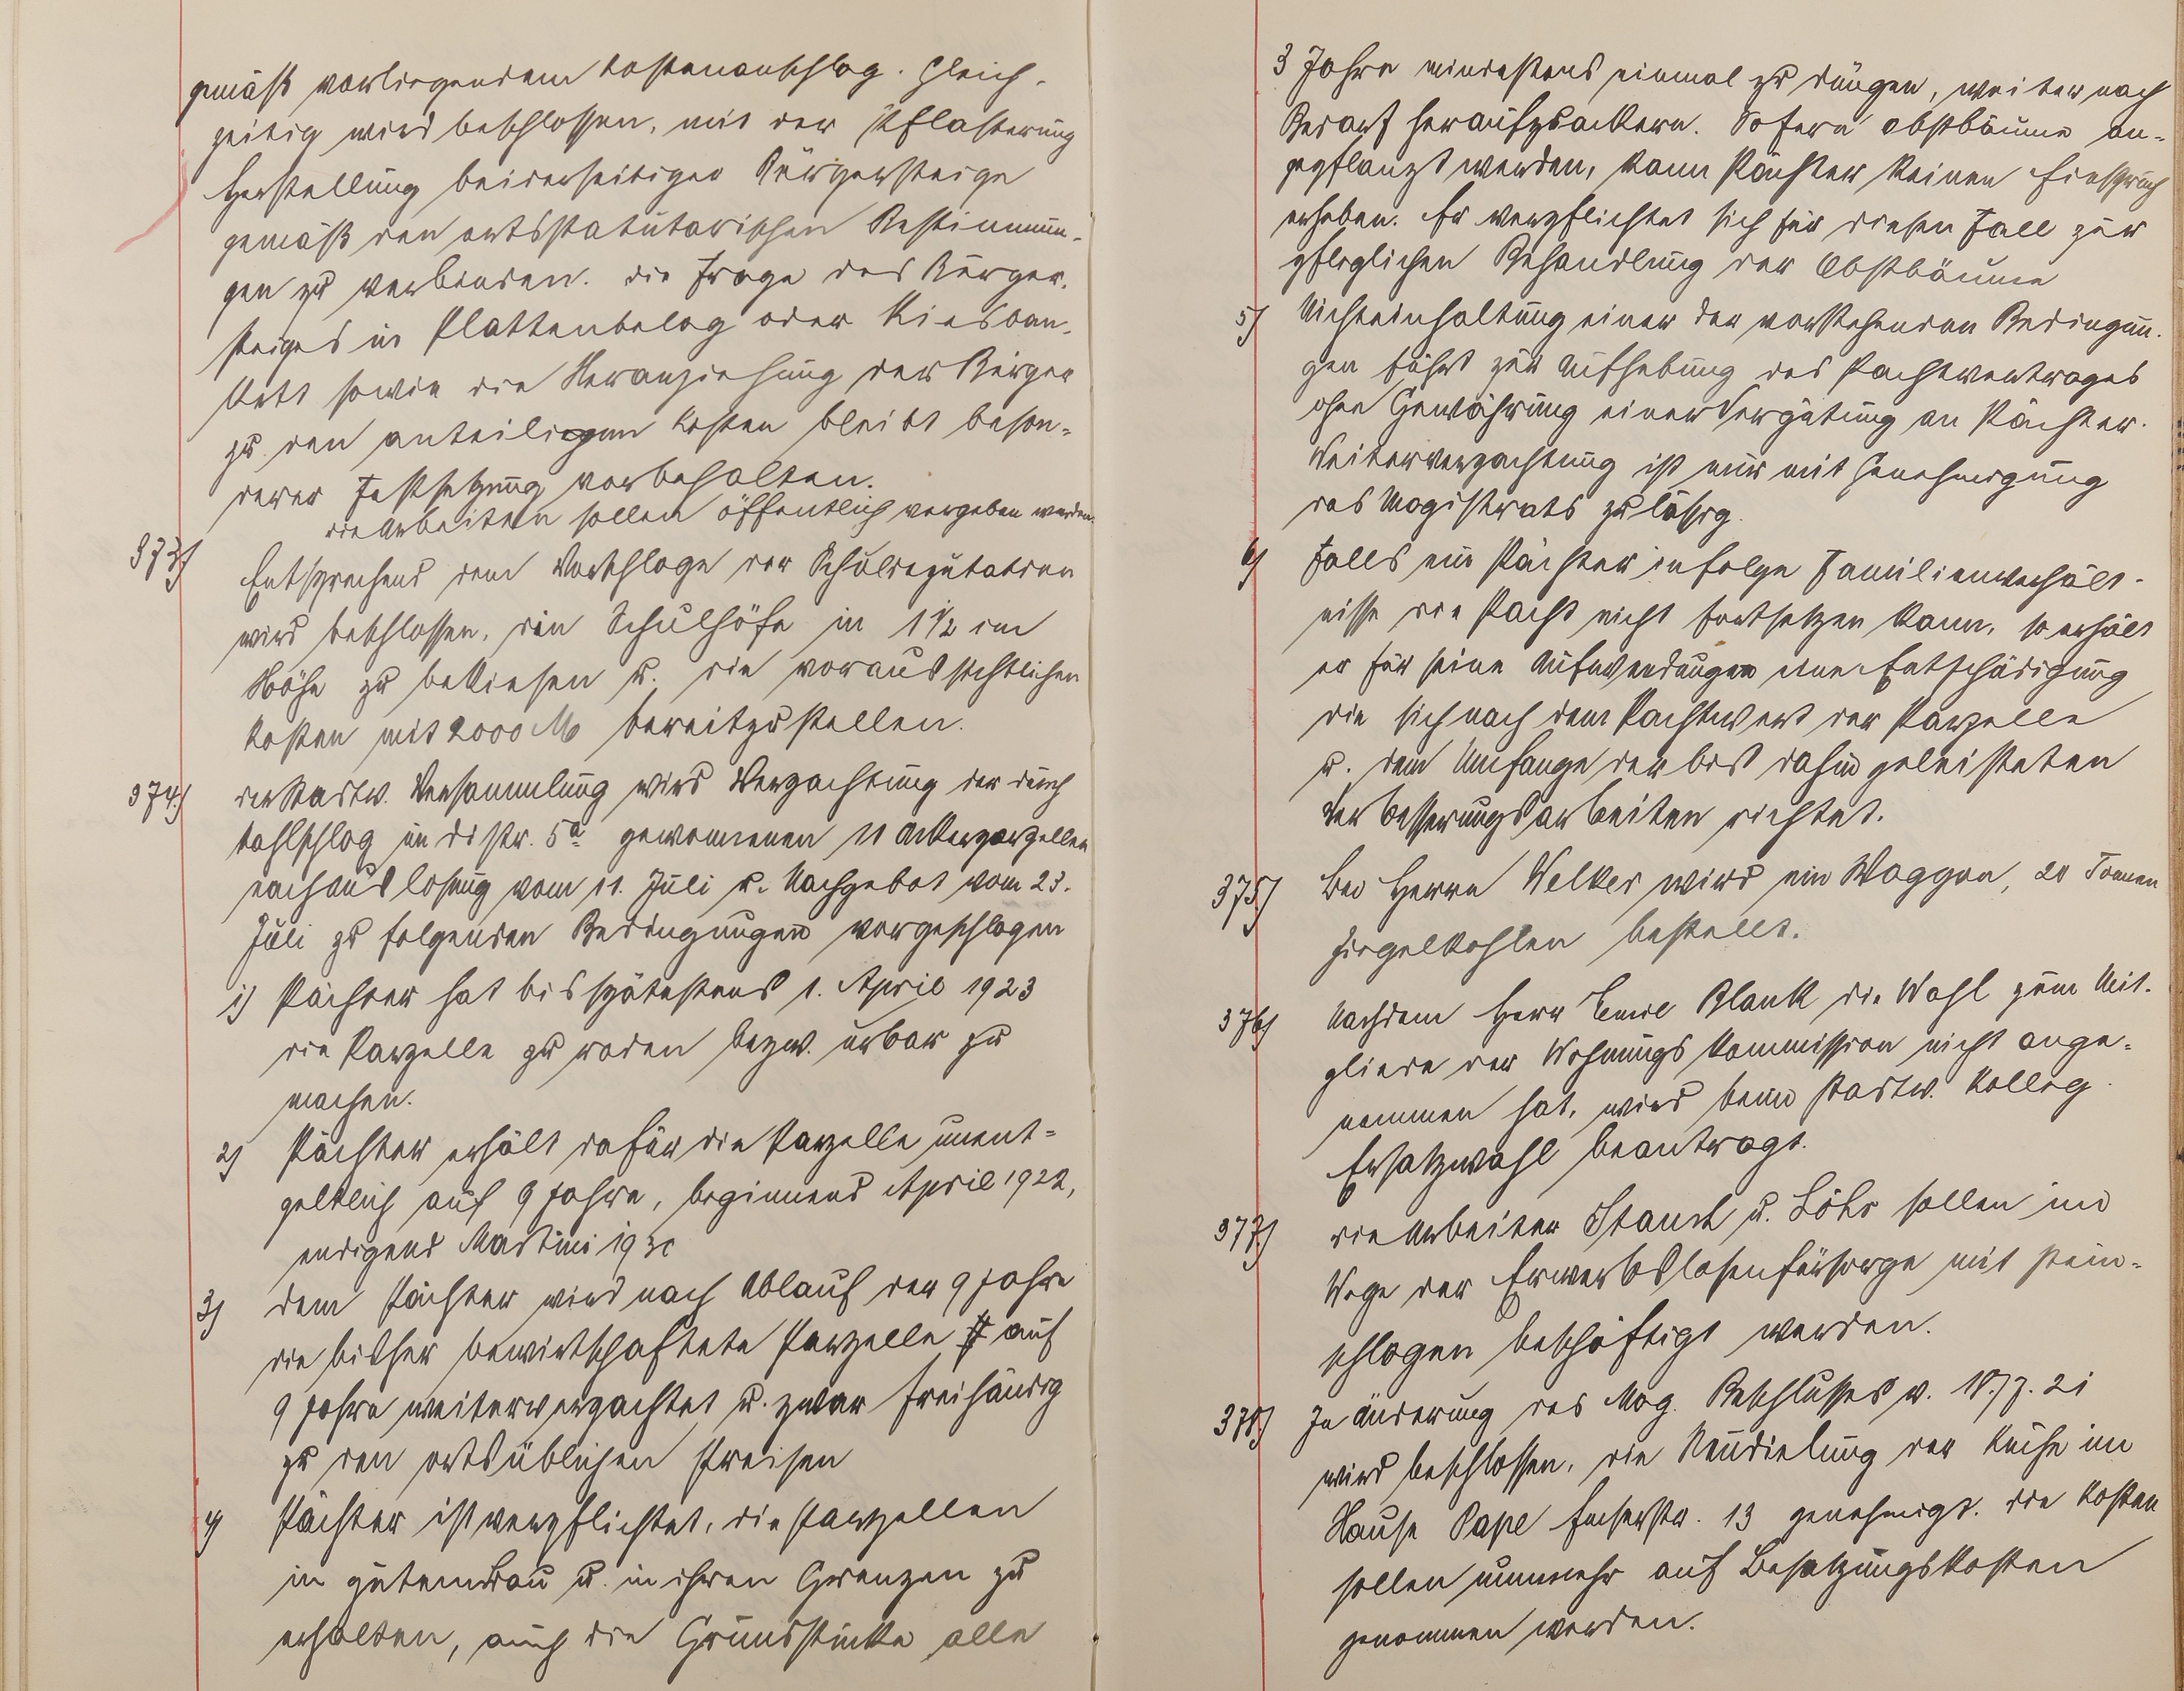 gemäß vorliegendem Kostenanschlag. Gleich-
zeitig wird beschlossen, mit der Pflasterung
Herstellung beiderseitiger Bürgersteige
gemäß den ortsstatutarischen Bestimmun-
gen zu verbinden. Die Frage des Bürger-
steiges in Plattenbelag oder Kies
sowie die Heranziehung der Bürger
zu den anteiligen Kosten bleibt beson-
derer Festsetzung vorbehalten.
Die Arbeiten sollen öffentlich vergeben werden.
373) Entsprechend dem Vorschlage der Schuldeputation
wird beschlossen, die Schulhöfe in 1 1/2 cm
Höhe zu bekiesen u. die voraussichtlichen
Kosten mit 2000 M bereitzustellen.
374) Der Stadtv. Versammlung wird Verpachtung der durch
Kahlschlag in Distr. 5a gewonnenen 11 Ackerparzellen
nach Auslosung vom 11. Juli u. Nachgebot vom 23.
Juli zu folgenden Bedingungen vorgeschlagen
1) Pächter hat bis spätestens 1. April 1923
die Parzelle zu roden bezw. urbar zu
machen.
2) Pächter erhält dafür die Parzelle unent-
geltlich auf 9 Jahre, beginnend April 1922,
endigend Martini 1930
3) Dem Pächter wird nach Ablauf der 9 Jahre
die bisher bewirtschaftete Parzelle auf
9 Jahre weiterverpachtet u. zwar freihändig
zu den ortsüblichen Preisen
4) Pächter ist verpflichtet, die Parzellen
in gutem Bau u. in ihren Grenzen zu
erhalten, auch die Grundstücke alle
3 Jahre mindestens einmal zu düngen, weiter nach
Bedarf heraufzuackern. Sofern Obstbäume an-
gepflanzt werden, kann Pächter keinen Einspruch
erheben. Er verpflichtet sich für diesen Fall zur
pfleglichen Behandlung der Obstbäume
5) Nichteinhaltung einer der vorstehenden Bedingun-
gen führt zur Aufhebung des Pachtvertrages
ohne Gewährung einer Vergütung an Pächter.
Weiterverpachtung ist nur mit Genehmigung
des Magistrats zulässig.
6) Falls ein Pächter infolge Familienverhält-
nisse die Pacht nicht fortsetzen kann, so erhält
er für seine Aufwendungen eine Entschädigung
die sich nach dem Pachtwert der Parzelle
u. dem Umfange der bis dahin geleisteten
Verbesserungsarbeiten richtet.
375) Bei Herrn Welker wird ein Waggon, 20 Tonnen
Ziegelkohlen bestellt.
376) Nachdem Herr Emil Blank die Wahl zum Mit-
gliede der Wohnungskommission nicht ange-
nommen hat, wird beim Stadtv. Kolleg
Ersatzwahl beantragt.
377) Die Arbeiter Stauch u. Löhr sollen im
Wege der Erwerbslosenfürsorge mit Stein-
schlagen beschäftigt werden.
378) In Änderung des Mag. Beschlusses v. 18./7. 21
wird beschlossen, die Neudielung der Küche im
Hause Pape Emserstr. 13 genehmigt. Die Kosten
sollen nunmehr auf Besatzungskosten
genommen werden.